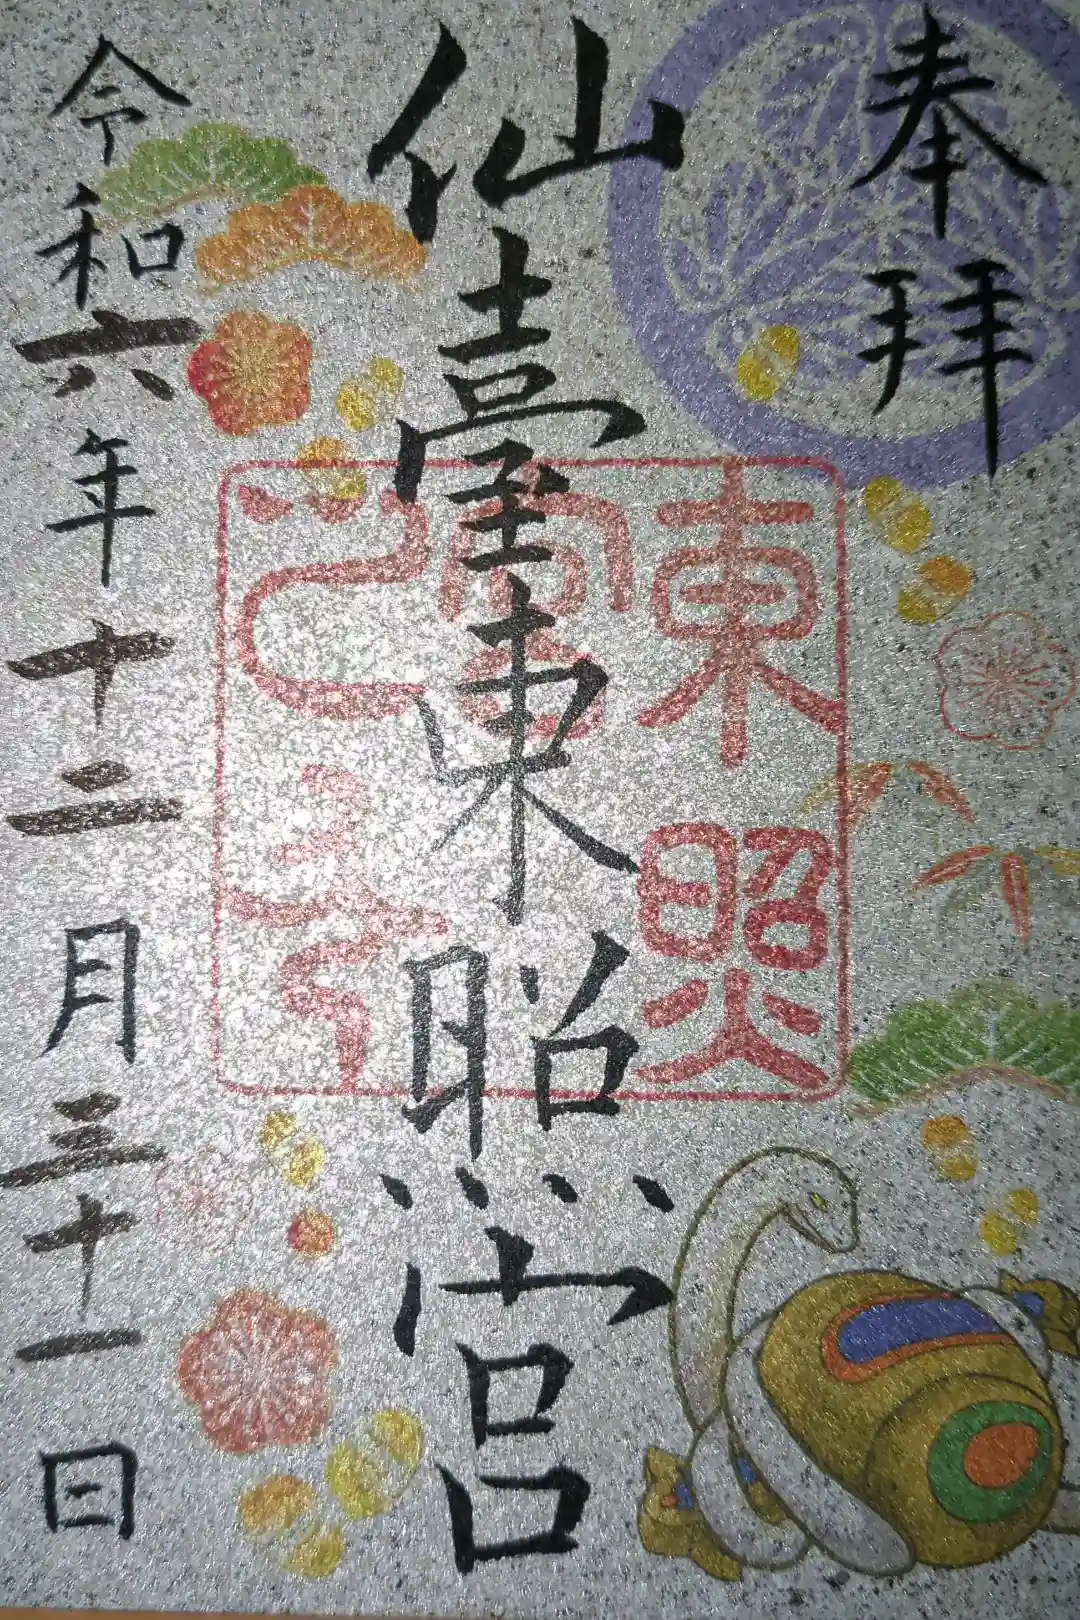 奉拝
仙臺東照宮
東照
宮
令和六年十二月三十一日